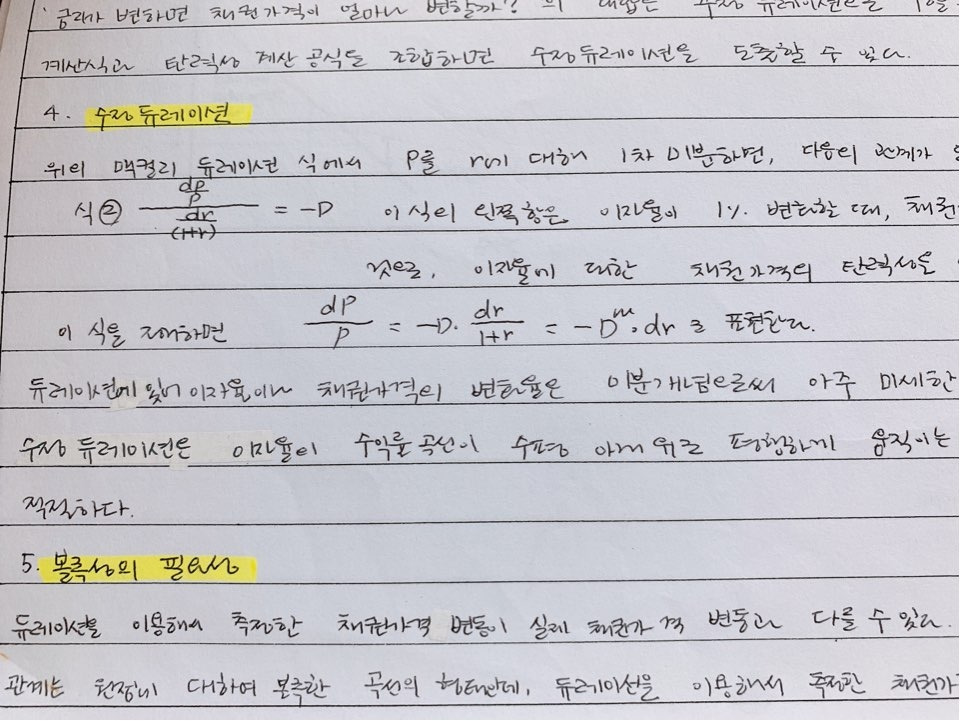 금리가 변하면 채권가격이 얼마나 변할까? 의 대답은 수정 듀레이션으로
계산식과 탄력성 계산 공식을 조합하면 수정듀레이션을 도출할 수 있다.
4. 수정 듀레이션
위의 맥컬리 듀레이션 식에서 P를 r에 대해 1차 미분하면, 다음의 관계가
식② (dP/P)/(dr/(1+r)) = -D 이 식의 왼쪽항은 이자율이 1% 변화할 때, 채권
것으로, 이자율에 대한 채권가격의 탄력성을
이 식을 재배하면 dP/P = -D· dr/1+r = -Dᵐ·dr 로 표현한다.
듀레이션에 있어 이자율이나 채권가격의 변화율은 미분개념으로써 아주 미세한
수정 듀레이션은 이자율이 수익률곡선이 수평 아래위로 평행하게 움직이는
적절하다.
5. 볼록성의 필요성
듀레이션을 이용해서 추정한 채권가격 변동이 실제 채권가격 변동과 다를 수 있다.
관계는 원점에 대하여 볼록한 곡선의 형태인데, 듀레이션을 이용해서 추정한 채권가